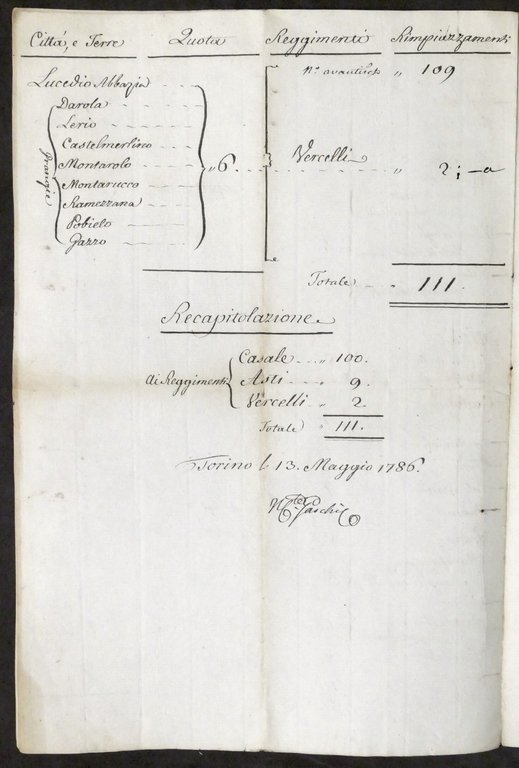 Città, e Terre Quota Reggimenti Rimpiazzamenti
Lucedio Abbazia
Darola
Lerio
Castelmerlino
Montarolo
Montarucco
Ramezzana
Pobielo
Gazzo
Grangie
6.
N.°
Vercelli
109
2
Totale 111.
Recapitolazione
Ai Reggimenti
Casale 100.
Asti 9.
Vercelli 2.
Totale 111.
Torino li 13. Maggio 1786.